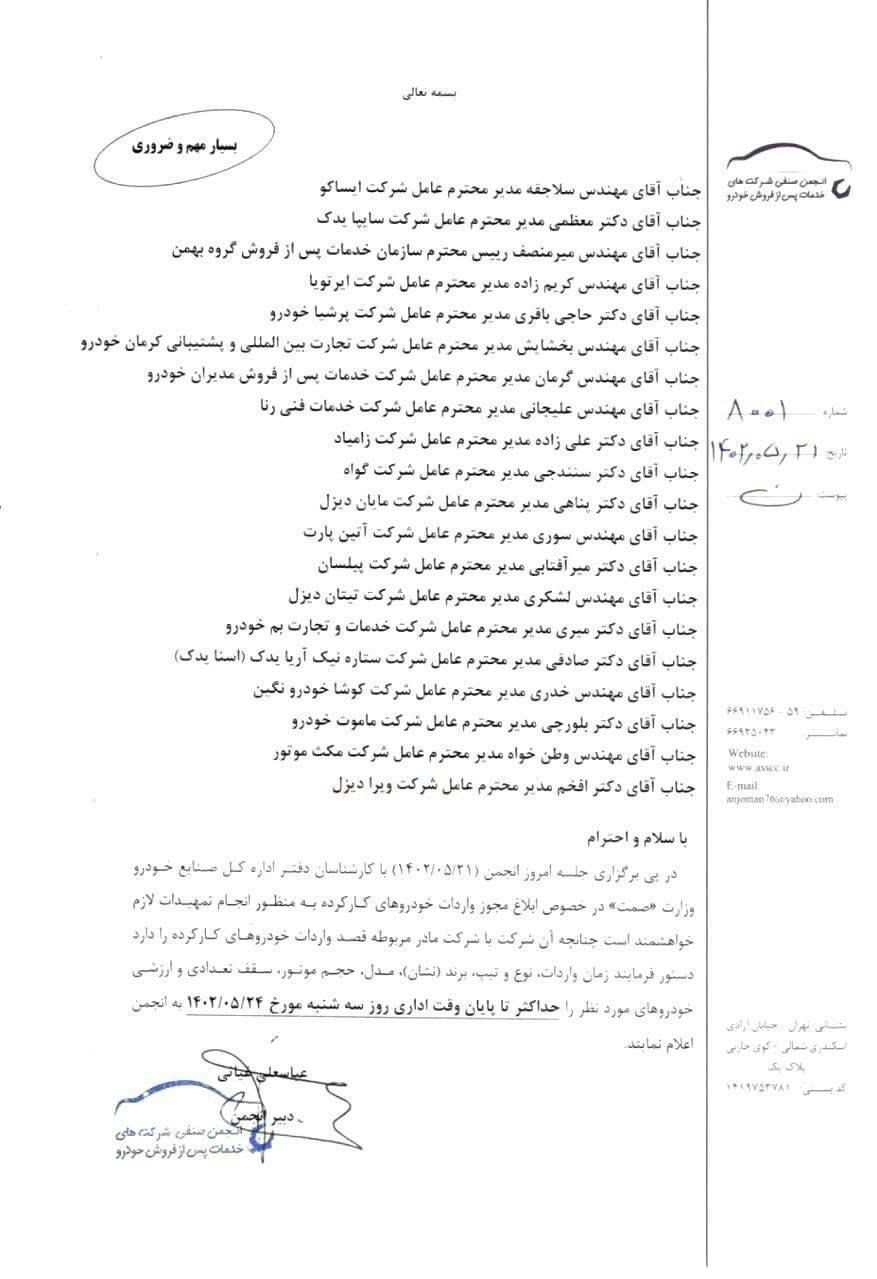 بسمه تعالی
بسیار مهم و ضروری
انجمن صنفی شرکت های
خدمات پس از فروش خودرو
جناب آقای مهندس سلاجقه مدیر محترم عامل شرکت ایساکو
جناب آقای دکتر معظمی مدیر محترم عامل شرکت سایپا یدک
جناب آقای مهندس میرمنصف رییس محترم سازمان خدمات پس از فروش گروه بهمن
جناب آقای مهندس کریم زاده مدیر محترم عامل شرکت ایرتویا
جناب آقای دکتر حاجی باقری مدیر محترم عامل شرکت پرشیا خودرو
جناب آقای مهندس بخشایش مدیر محترم عامل شرکت تجارت بین المللی و پشتیبانی کرمان خودرو
جناب آقای مهندس گرمان مدیر محترم عامل شرکت خدمات پس از فروش مدیران خودرو
جناب آقای مهندس علیجانی مدیر محترم عامل شرکت خدمات فنی رنا
جناب آقای دکتر علی زاده مدیر محترم عامل شرکت زامیاد
جناب آقای دکتر سنندجی مدیر محترم عامل شرکت گواه
جناب آقای دکتر پناهی مدیر محترم عامل شرکت مایان دیزل
جناب آقای مهندس سوری مدیر محترم عامل شرکت آتین پارت
جناب آقای دکتر میرآفتابی مدیر محترم عامل شرکت پیلسان
جناب آقای مهندس لشکری مدیر محترم عامل شرکت تیتان دیزل
جناب آقای دکتر میری مدیر محترم عامل شرکت خدمات و تجارت بم خودرو
جناب آقای دکتر صادقی مدیر محترم عامل شرکت ستاره نیک آریا یدک (اسنا یدک)
جناب آقای مهندس خدری مدیر محترم عامل شرکت کوشا خودرو نگین
جناب آقای دکتر بلورچی مدیر محترم عامل شرکت ماموت خودرو
جناب آقای مهندس وطن خواه مدیر محترم عامل شرکت مکث موتور
جناب آقای دکتر افخم مدیر محترم عامل شرکت ویرا دیزل
با سلام و احترام
در پی برگزاری جلسه امروز انجمن (۱۴۰۲/۰۵/۲۱) با کارشناسان دفتر اداره کل صنایع خودرو
وزارت «صمت» در خصوص ابلاغ مجوز واردات خودروهای کارکرده به منظور انجام تمهیدات لازم
خواهشمند است چنانچه آن شرکت یا شرکت مادر مربوطه قصد واردات خودروهای کارکرده را دارد
دستور فرمایند زمان واردات، نوع و تیپ، برند (نشان)، مدل، حجم موتور، سقف تعدادی و ارزشی
خودروهای مورد نظر را حداکثر تا پایان وقت اداری روز سه شنبه مورخ ۱۴۰۲/۰۵/۲۴ به انجمن
اعلام نمایند.
عباسعلی غیاثی
دبیر انجمن
انجمن صنفی شرکت های
خدمات پس از فروش خودرو
شماره ۸۰۰۱
تاریخ ۱۴۰۲،۰۵،۲۱
پیوست ن
تلفن: ۵۹ - ۶۶۹۱۱۷۵۶
نمابر ۶۶۹۲۵۰۴۳
Website:
www.asscc.ir
E-mail:
anjoman76@yahoo.com
نشانی: تهران - خیابان آزادی
اسکندری شمالی - کوی
پلاک یک
کد پستی ۱۴۱۹۷۵۳۷۸۱